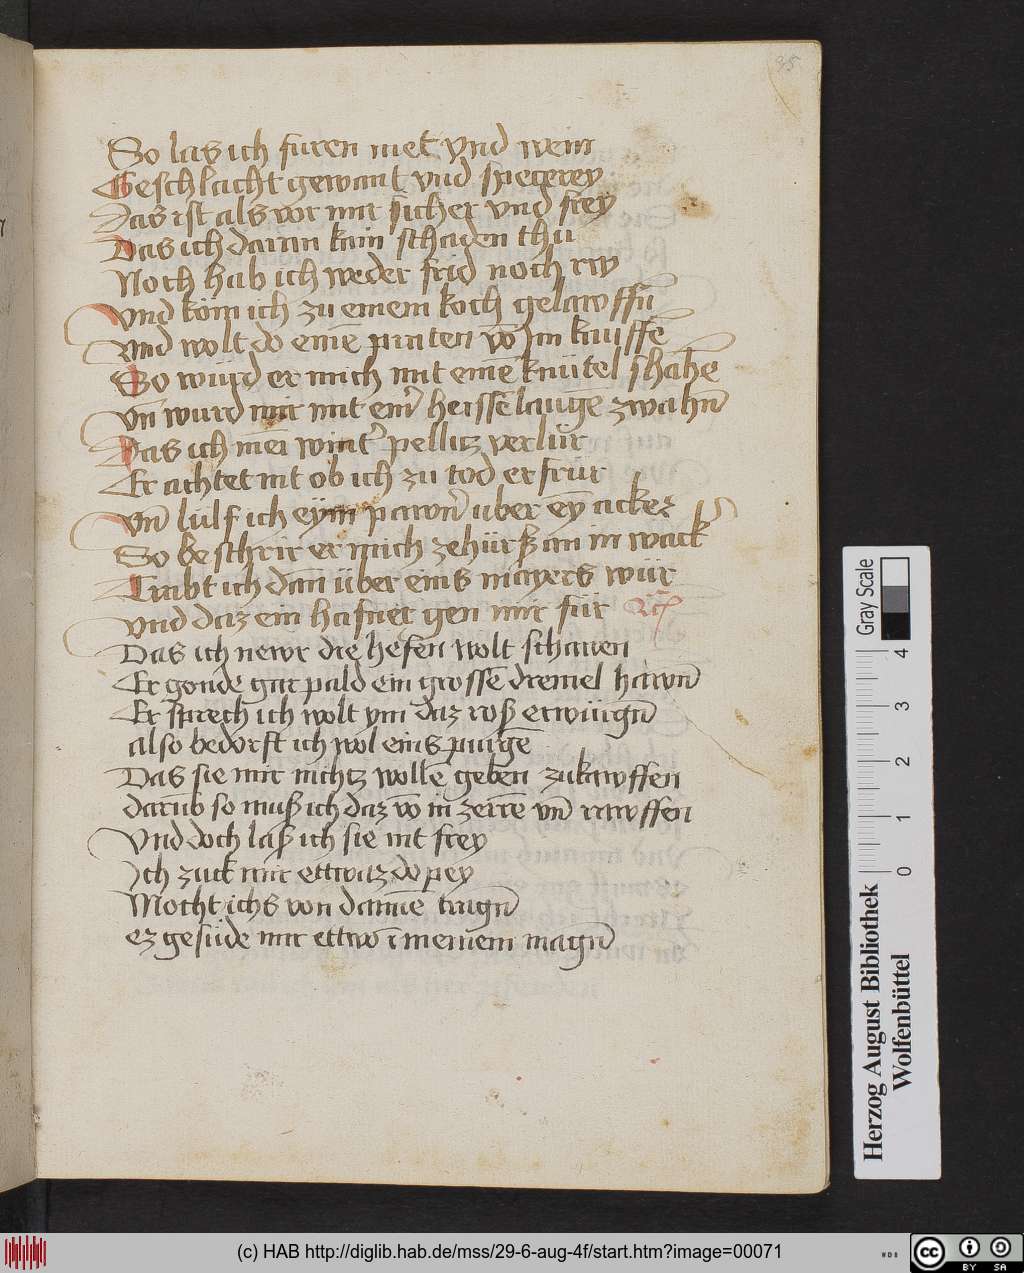 35
So las ich furen met vnd wein
Geschlacht gewant vnd specerey
Das ist als vor mir sicher vnd frey
Das ich daran kain schaden thu
Noch hab ich weder frid noch rw
Vnd köm ich zu einem koch gelawffn̄
Vnd wolt do einē praten vō Jm kauffē
So würd er mich mit einē knütel slahē
Vn̄ wurd mir mit eīr heissē laugē zwahn̄
Das ich mēī wintʼ pellitz verlür
Er achtet nit ob ich zu tod erfrür
Vn̄ lülf ich eym pawrn̄ uber ey̅ acker
So beschrir er mich zehürß an in wackʼ
Trabt ich dan über eins mayers wür
vnd daz ein hafner gen mir für
Das ich newr die hefen wolt schawen
Er gonde gar pald ein grossē dremel hawn̄
Er sprech ich wolt ym daz roß erwürgn̄
also bedorft ich wol eins purgē
Das sie mir nichtz wollē geben zukawffen
darūb so muß ich daz vō in zerrē vn̄ rawffen
Vnd doch laß ich sie nit frey
Ich zuck mir ettwaz do pey
Mocht ichs von dannē tragn̄
ez gesüde mir ettwo ī meinem magn̄
Gray Scale
0 1 2 3 4
Herzog August Bibliothek
Wolfenbüttel
(c) HAB http://diglib.hab.de/mss/29-6-aug-4f/start.htm?image=00071
WDB
cc BY SA